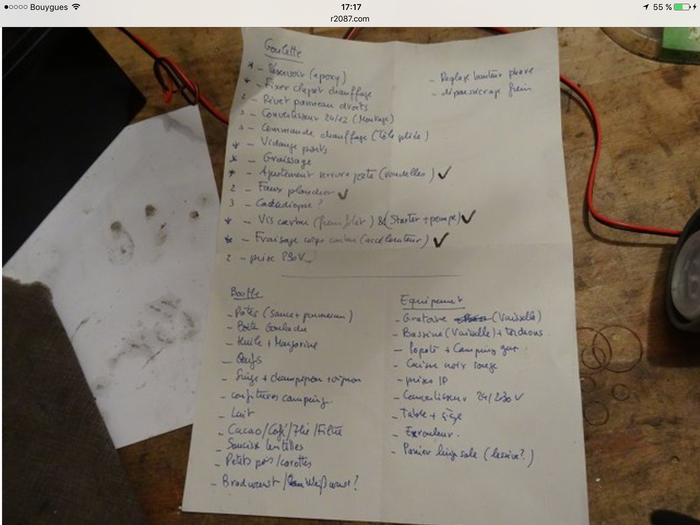 Bouygues 17:17 55 %
r2087.com
Goulette
* - Réservoir (epoxy)
* - Fixer clapet chauffage
2 - Rivet panneau droits
3 - Convertisseur 24/12 (Montage)
- Commande chauffage
* - Vidange ponts
* - Graissage
* - Ajustement serrure porte (rondelles) ✓
2 - Faux plancher ✓
3 - Catadioptre ?
* - Vis carbu & (Starter + pompe) ✓
* - Fraisage corps carbu (accélérateur) ✓
2 - prise 230V
- Reglage hauteur phare
- frein
Bouffe
- Pâtes (sauce + parmesan)
- Boite Goulash
- Huile + Margarine
- Oeufs
- champignon + oignon
- confitures camping
- Lait
- Cacao/Café/Thé/Filtre
- Saucisse lentilles
- Petits pois/carottes
- Bradwurst / Weißwurst ?
Equipement
- Grataire (Vaisselle)
- Bassine (Vaisselle) + torchons
- Popote + Camping gaz
- Caisse noir rouge
- prises IP
- Convertisseur 24/230V
- Table + siège
- Enrouleur.
- Panier linge sale (lessive ?)